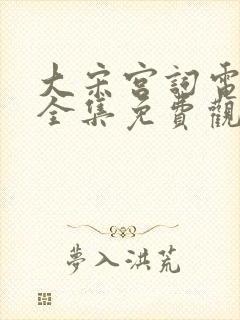 大宋宮詞電
全集免費觀
夢入洪荒